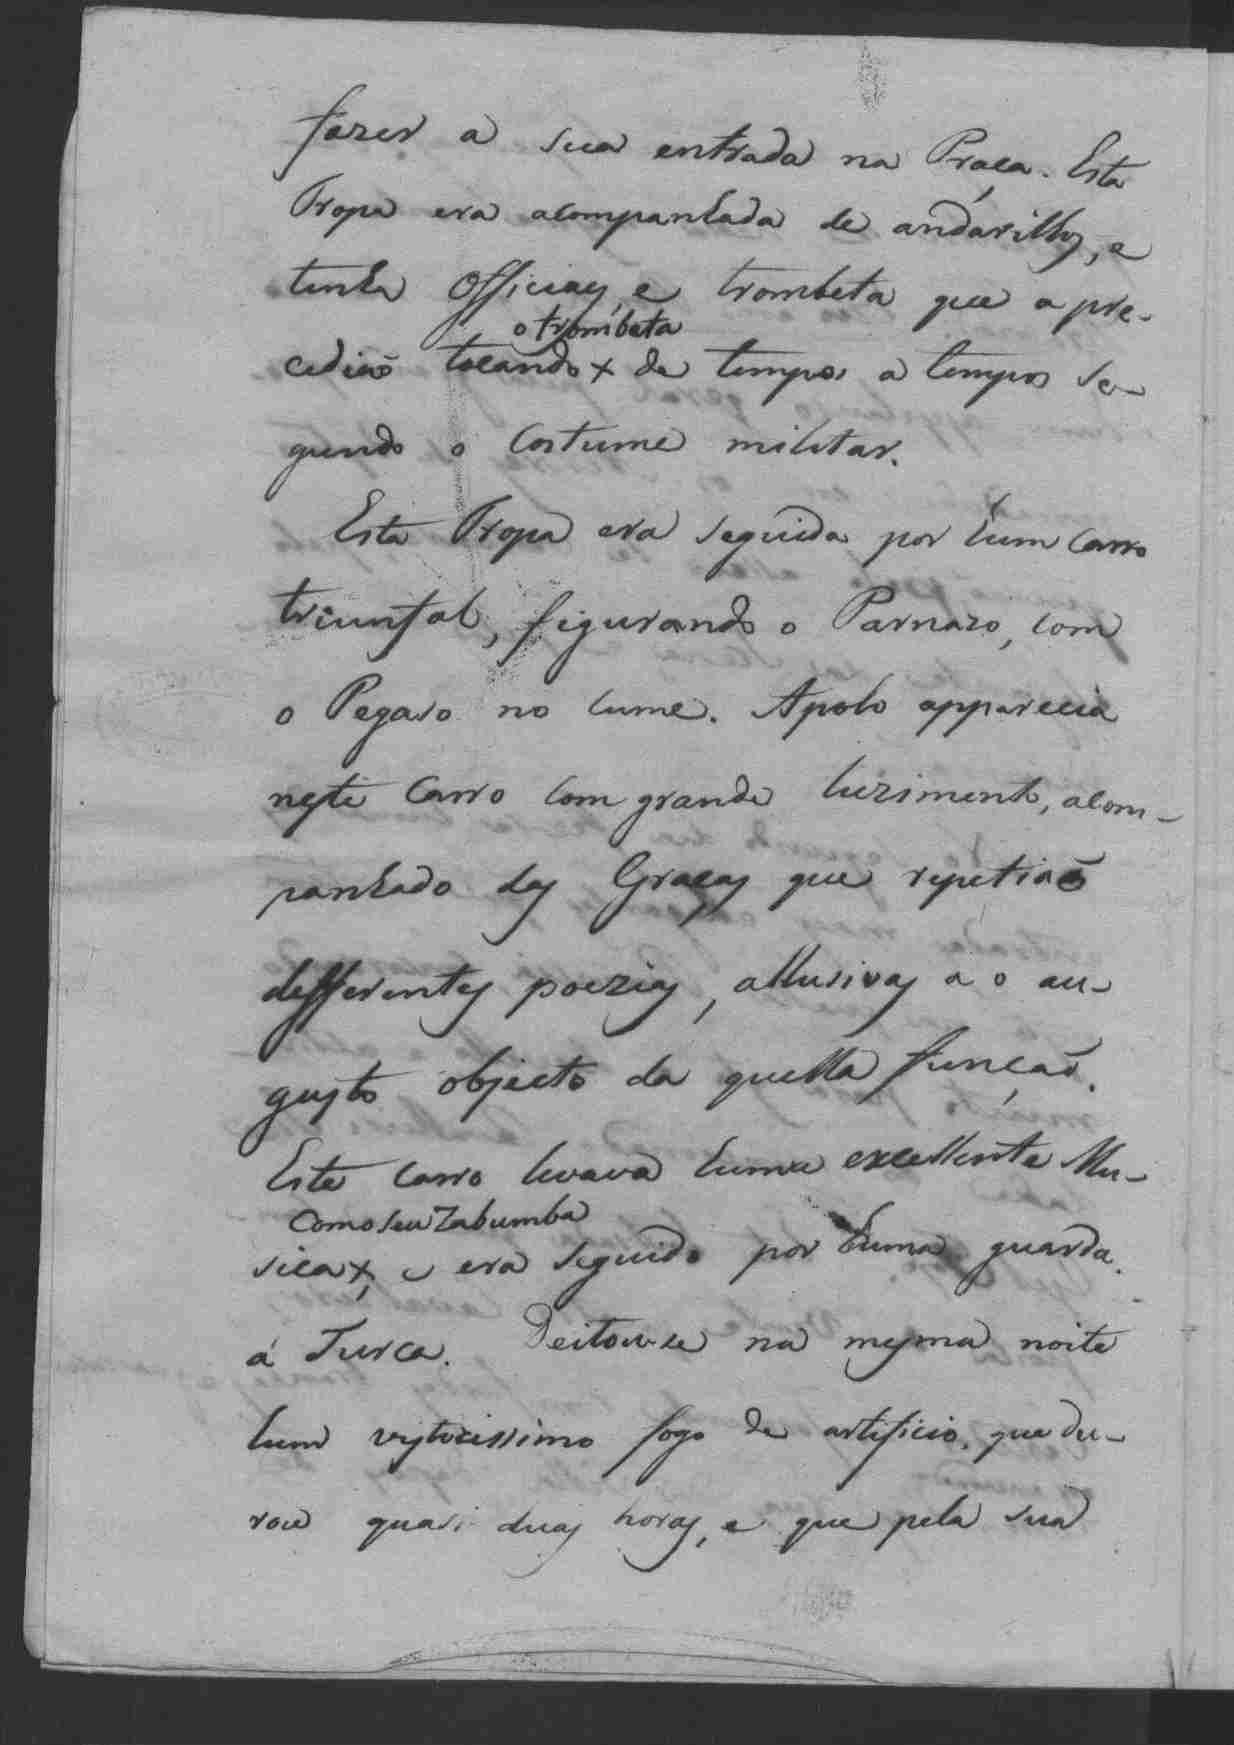 fazer a sua entrada na Praça. Esta
Tropa era acompanhada de andarilhos, e
tinha Officiaes, e trombeta que a pre-
o trombeta
cedião tocando x de tempos a tempos se-
gundo o costume militar.
Esta Tropa era seguida por hum Carro
triunfal, figurando o Parnazo, com
o Pegaso no cume. Apolo apparecia
neste Carro com grande luzimento, acom-
panhado das Graças que repetião
defferentes poezias, allusivas a o au-
gusto objecto da quella função.
Este carro levava huma excellente Mu-
Como seu Zabumba
sica x, e era seguido por huma guarda
á Turca. Deitou-se na mesma noite
hum vistozissimo fogo de artificio, que du-
rou quasi duas horas, e que pela sua